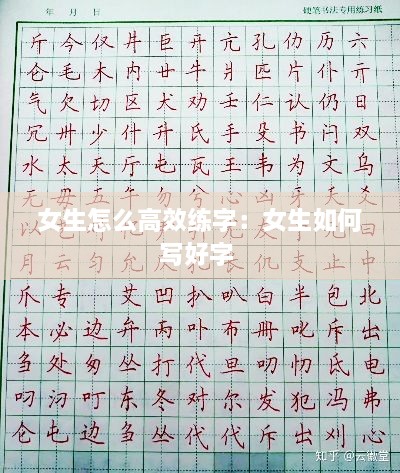 年 月 日 硬笔书法专用练习纸
斤 今 仅 井 巨 开 亢 孔 仂 历 六
仑 毛 木 内 廿 牛 爿 匹 片 仆 亓
气 欠 切 区 犬 劝 壬 仁 认 仍 日
冗 卅 少 什 升 氏 手 殳 书 闩 双
水 太 天 厅 屯 瓦 王 韦 为 文 乌
无 毋 五 午
女生怎么高效练字：女生如何
写好字
月 云 匀 允 支 止 中
爪 专 艾 凹 扒 叭 白 半 包 北
本 必 边 弁 丙 卟 布 册 叱 斥 出
刍 处 匆 丛 打 代 旦 叨 忉 氐 电
叼 汈 叮 东 冬 对 尔 发 犯 冯 弗
仑 屯 边 刍 丛 代 代 斥 出 刈 心
知乎 @云徽堂